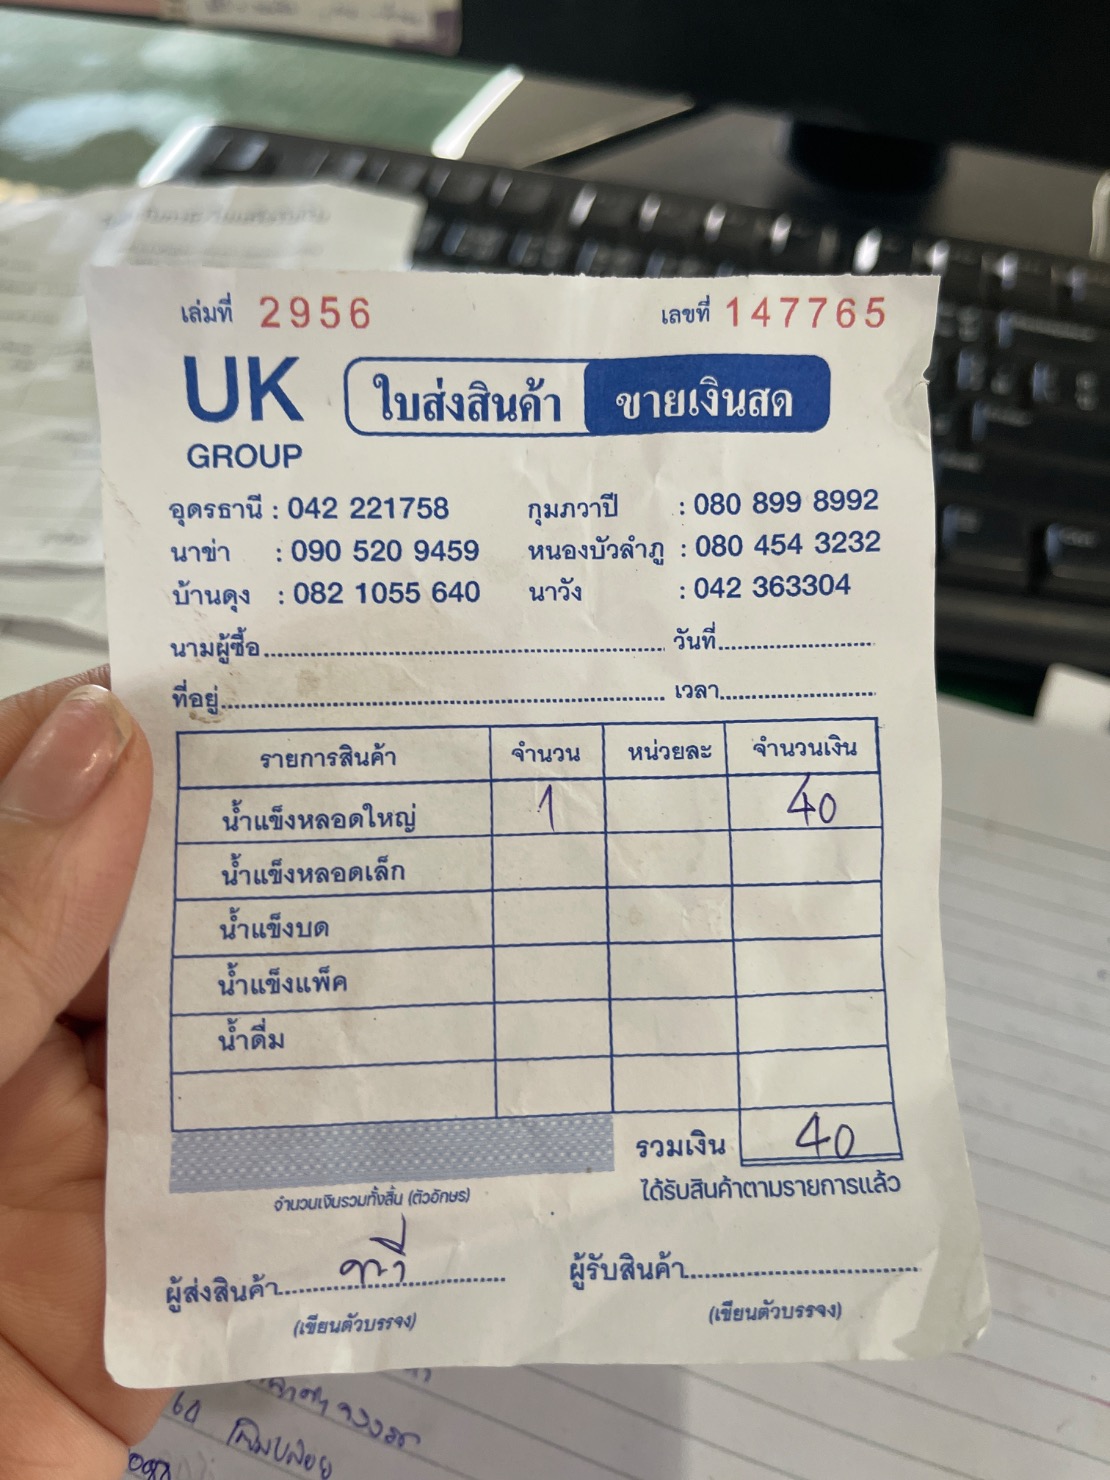 เล่มที่ 2956 เลขที่ 147765
UK GROUP
ใบส่งสินค้า ขายเงินสด
อุดรธานี : 042 221758 กุมภวาปี : 080 899 8992
นาข่า : 090 520 9459 หนองบัวลำภู : 080 454 3232
บ้านดุง : 082 1055 640 นาวัง : 042 363304
นามผู้ซื้อ วันที่
ที่อยู่ เวลา
รายการสินค้า จำนวน หน่วยละ จำนวนเงิน
น้ำแข็งหลอดใหญ่ 1 40
น้ำแข็งหลอดเล็ก
น้ำแข็งบด
น้ำแข็งแพ็ค
น้ำดื่ม
รวมเงิน 40
จำนวนเงินรวมทั้งสิ้น (ตัวอักษร) ได้รับสินค้าตามรายการแล้ว
ผู้ส่งสินค้า ผู้รับสินค้า
(เขียนตัวบรรจง) (เขียนตัวบรรจง)